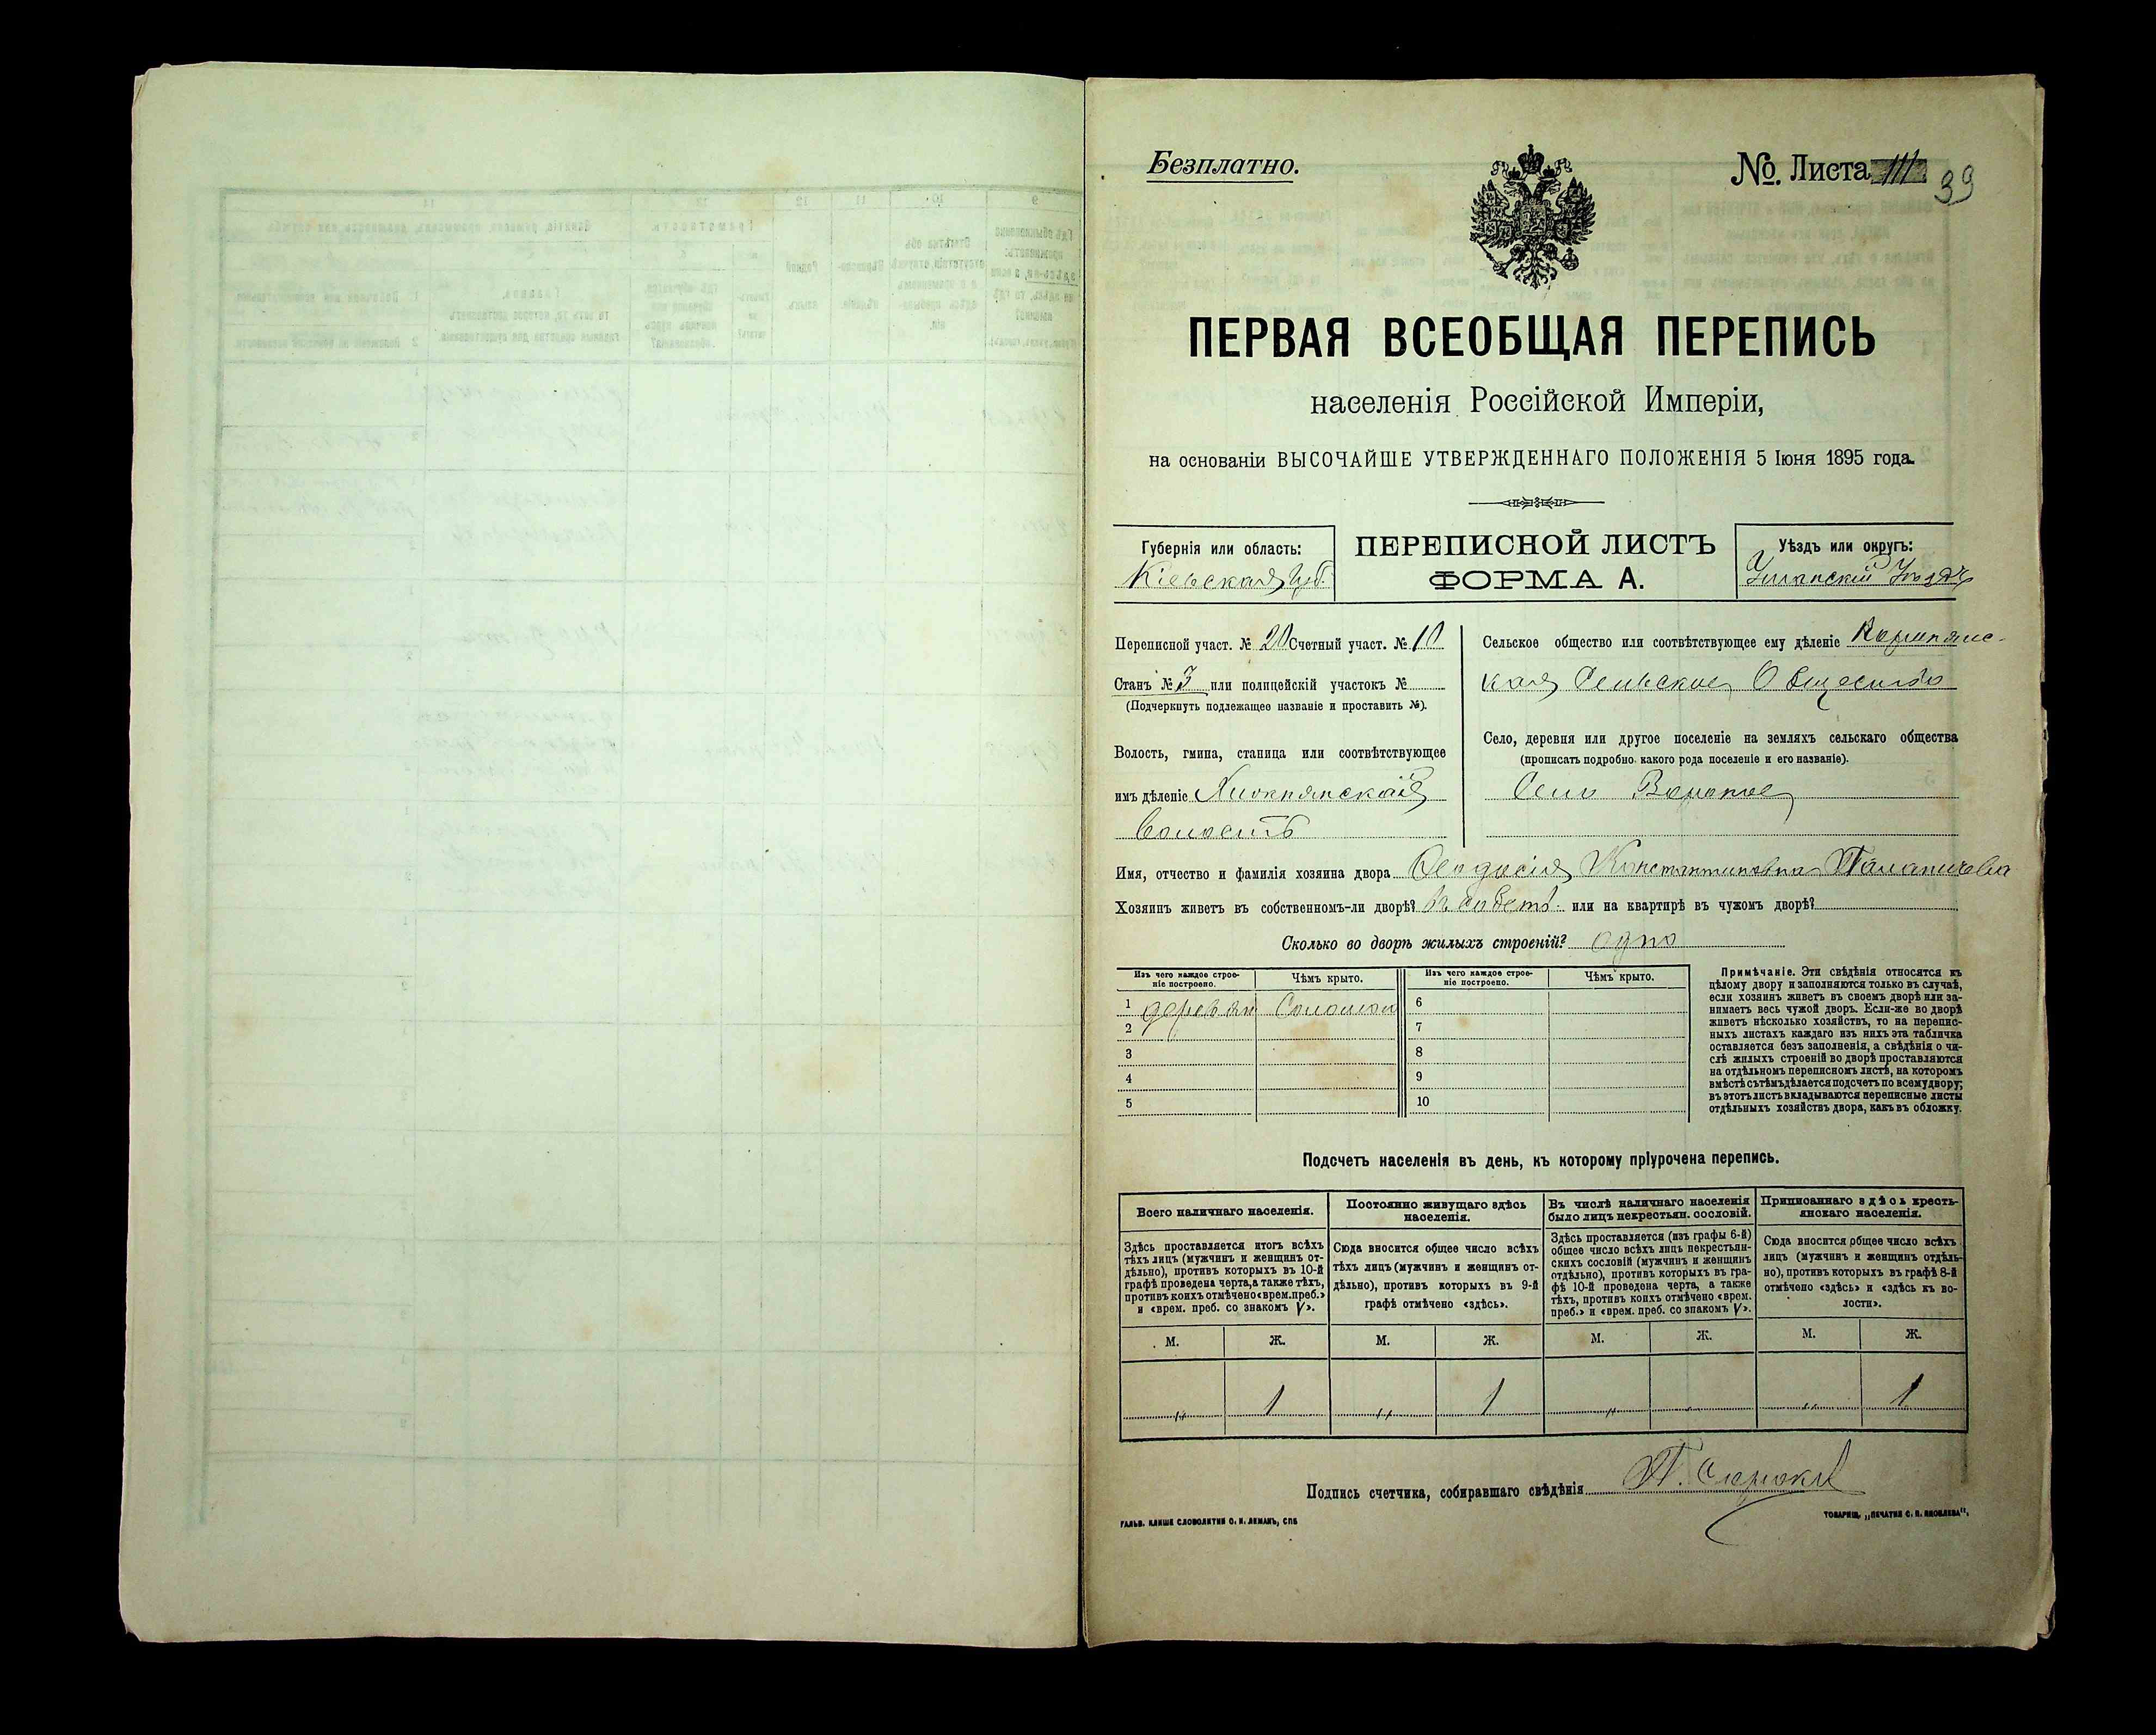 Безплатно.
№ Листа 111
39
ПЕРВАЯ ВСЕОБЩАЯ ПЕРЕПИСЬ
населенія Россійской Имперіи,
на основаніи ВЫСОЧАЙШЕ УТВЕРЖДЕННАГО ПОЛОЖЕНІЯ 5 Іюня 1895 года.
Губернія или область:
Кіевская Губ.
ПЕРЕПИСНОЙ ЛИСТЪ
ФОРМА А.
Уѣздъ или округъ:
Уманскій Уѣздъ
Переписной участ. № 20 Счетный участ. № 10
Станъ № 3 или полицейскій участокъ №
(Подчеркнуть подлежащее названіе и проставить №).
Волость, гмина, станица или соотвѣтствующее
имъ дѣленіе
Волость
Сельское общество или соотвѣтствующее ему дѣленіе
кая Сельское Общество
Село, деревня или другое поселеніе на земляхъ сельскаго общества
(прописать подробно какого рода поселеніе и его названіе).
Село
Имя, отчество и фамилія хозяина двора Феодосія Константиновна
Хозяинъ живетъ въ собственномъ-ли дворѣ? въ собств. или на квартирѣ въ чужомъ дворѣ?
Сколько во дворѣ жилыхъ строеній? одно
Изъ чего каждое строе-
ніе построено.
Чѣмъ крыто.
Изъ чего каждое строе-
ніе построено.
Чѣмъ крыто.
1 деревян Соломой 6
2 7
3 8
4 9
5 10
Примѣчаніе. Эти свѣдѣнія относятся къ
цѣлому двору и заполняются только въ случаѣ,
если хозяинъ живетъ въ своемъ дворѣ или за-
нимаетъ весь чужой дворъ. Если-же во дворѣ
живетъ нѣсколько хозяйствъ, то на перепис-
ныхъ листахъ каждаго изъ нихъ эта табличка
оставляется безъ заполненія, а свѣдѣнія о чи-
слѣ жилыхъ строеній во дворѣ проставляются
на отдѣльномъ переписномъ листѣ, на которомъ
вмѣстѣ съ тѣмъ дѣлается подсчетъ по всему двору;
въ этотъ листъ вкладываются переписные листы
отдѣльныхъ хозяйствъ двора, какъ въ обложку.
Подсчетъ населенія въ день, къ которому пріурочена перепись.
Всего наличнаго населенія.
Здѣсь проставляется итогъ всѣхъ
тѣхъ лицъ (мужчинъ и женщинъ от-
дѣльно), противъ которыхъ въ 10-й
графѣ проведена черта, а также тѣхъ,
противъ коихъ отмѣчено «врем. преб.»
и «врем. преб. со знакомъ V».
Постоянно живущаго здѣсь
населенія.
Сюда вносится общее число всѣхъ
тѣхъ лицъ (мужчинъ и женщинъ от-
дѣльно), противъ которыхъ въ 9-й
графѣ отмѣчено «здѣсь».
Въ числѣ наличнаго населенія
было лицъ некрестьян. сословій.
Здѣсь проставляется (изъ графы 6-й)
общее число всѣхъ лицъ некрестьян-
скихъ сословій (мужчинъ и женщинъ
отдѣльно), противъ которыхъ въ гра-
фѣ 10-й проведена черта, а также
тѣхъ, противъ коихъ отмѣчено «врем.
преб.» и «врем. преб. со знакомъ V».
Приписаннаго здѣсь кресть-
янскаго населенія.
Сюда вносится общее число всѣхъ
лицъ (мужчинъ и женщинъ отдѣль-
но), противъ которыхъ въ графѣ 8-й
отмѣчено «здѣсь» и «здѣсь къ во-
лости».
М. Ж. М. Ж. М. Ж. М. Ж.
" 1 " 1 " " " 1
Подпись счетчика, собиравшаго свѣдѣнія
ГАЛЬВ. КЛИШЕ СЛОВОЛИТНИ О. И. ЛЕМАНЪ, СПБ
ТОВАРИЩ. „ПЕЧАТНИ С. П. ЯКОВЛЕВА“.